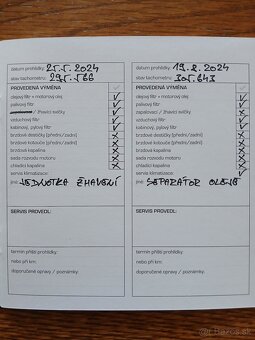 datum prohlídky: 25.5.2024
stav tachometru: 295.566
PROVEDENÁ VÝMĚNA
olejový filtr + motorový olej
palivový filtr
/ žhavicí svíčky
vzduchový filtr
kabinový, pylový filtr
brzdové destičky [přední/zadní]
brzdové kotouče [přední/zadní]
brzdová kapalina
sada rozvodu motoru
chladící kapalina
servis klimatizace:
jiné: JEDNOTKA ŽHAVENÍ
SERVIS PROVEDL:
termín příští prohlídky:
nebo při km:
doporučené opravy / poznámky:
datum prohlídky: 19.2.2024
stav tachometru: 305.643
PROVEDENÁ VÝMĚNA
olejový filtr + motorový olej
palivový filtr
zapalovací / žhavicí svíčky
vzduchový filtr
kabinový, pylový filtr
brzdové destičky [přední/zadní]
brzdové kotouče [přední/zadní]
brzdová kapalina
sada rozvodu motoru
chladící kapalina
servis klimatizace:
jiné: SEPARÁTOR OLEJE
SERVIS PROVEDL:
termín příští prohlídky:
nebo při km:
doporučené opravy / poznámky: